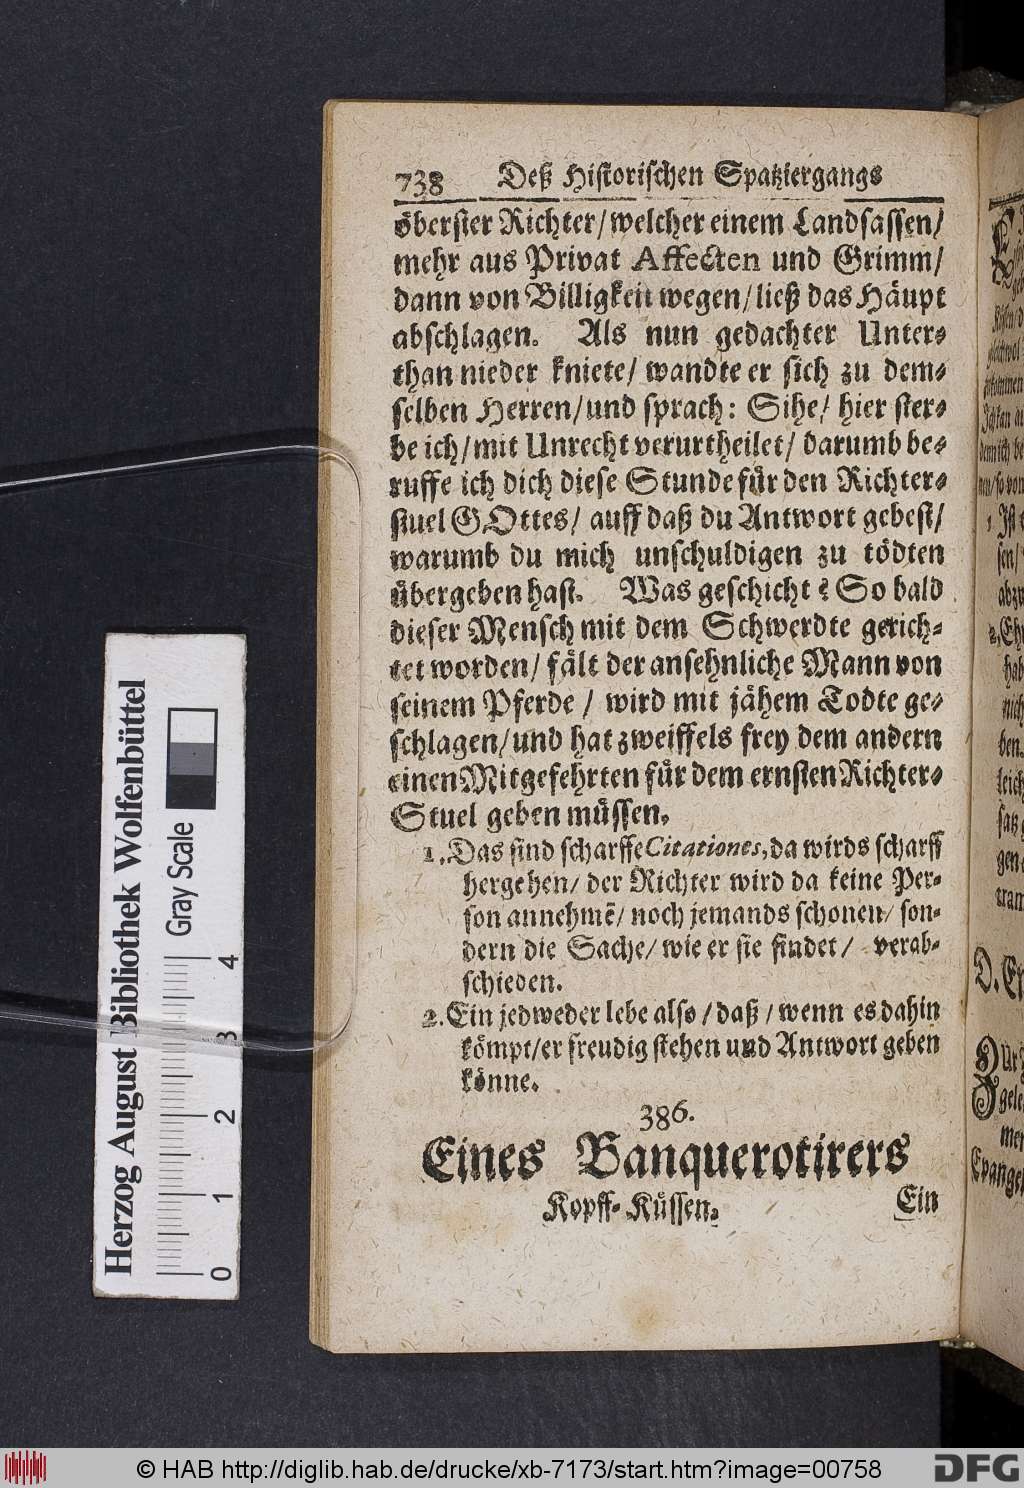 738 Deß Historischen Spatziergangs
öberster Richter/ welcher einem Landsassen/
mehr aus Privat Affecten und Grimm/
dann von Billigkeit wegen/ ließ das Häupt
abschlagen. Als nun gedachter Unter-
than nieder kniete/ wandte er sich zu dem-
selben Herren/ und sprach: Sihe/ hier ster-
be ich/ mit Unrecht verurtheilet/ darumb be-
ruffe ich dich diese Stunde für den Richter-
stuel GOttes/ auff daß du Antwort gebest/
warumb du mich unschuldigen zu tödten
übergeben hast. Was geschicht? So bald
dieser Mensch mit dem Schwerdte gerich-
tet worden/ fält der ansehnliche Mann von
seinem Pferde / wird mit jähem Todte ge-
schlagen/ und hat zweiffels frey dem andern
einen Mitgefehrten für dem ernsten Richter-
Stuel geben müssen.
1. Das sind scharffe Citationes, da wirds scharff
hergehen/ der Richter wird da keine Per-
son annehmẽ/ noch jemands schonen/ son-
dern die Sache/ wie er sie findet/ verab-
schieden.
2. Ein jedweder lebe also / daß / wenn es dahin
kömpt/ er freudig stehen und Antwort geben
könne.
386.
Eines Banquerotirers
Kopff-Küssen.
Ein
Herzog August Bibliothek Wolfenbüttel
Gray Scale
0 1 2 3 4
© HAB http://diglib.hab.de/drucke/xb-7173/start.htm?image=00758
DFG